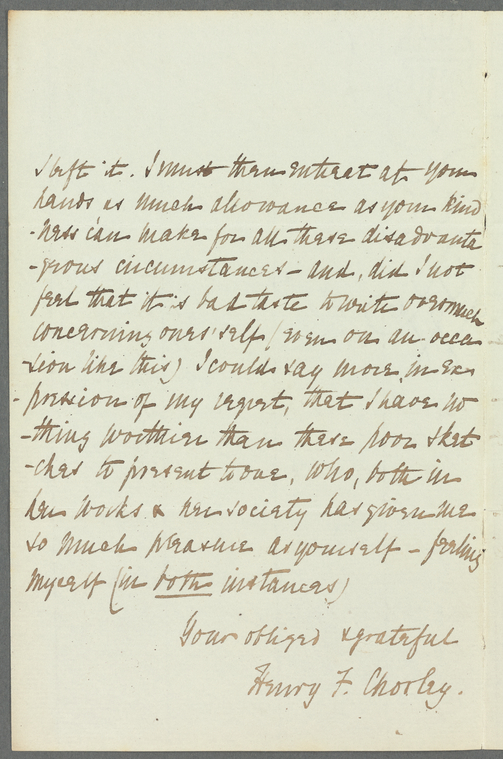 I left it. I must then entreat at your
hands as much allowance as your kind
-ness can make for all these disadvanta
-geous circumstances – and, did I not
feel that it is bad taste to write overmuch
concerning ones' self (even on an occa
-sion like this) I could say more, in ex
-pression of my regret, that I have no
-thing worthier than these poor sket
-ches to present to one, who, both in
her works & her society has given me
so much pleasure as yourself – feeling
myself (in both instances)
Your obliged & grateful
Henry F. Chorley.